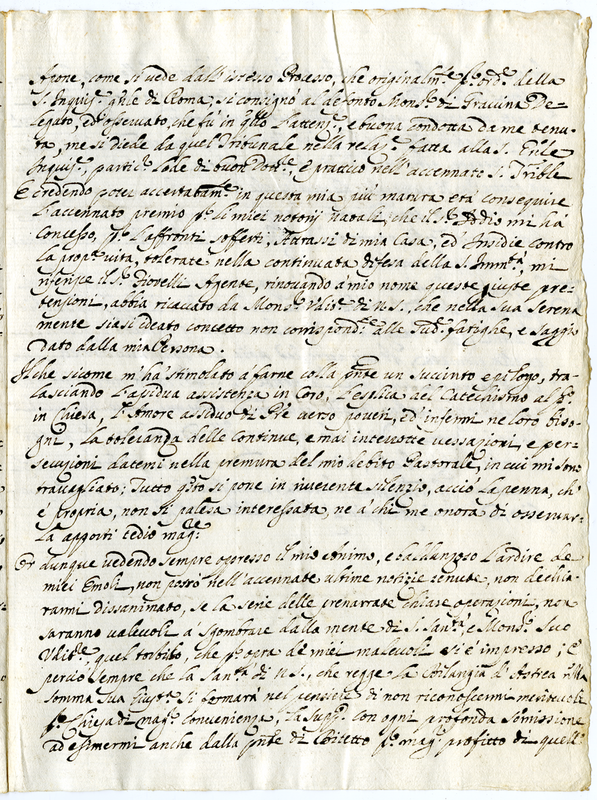 Arone, come si vede dall'istesso Processo, che originalmte p. ord.e della
S. Inquis.e gnle di Roma, si consignò al defonto Mons.r di Gravina De-
legato, ed osservato, che fù in qllo l'attenz.e, e buona condotta da me tenu-
ta, me si diede da quel Tribunale nella relaz.e fatta alla S. Gnle
Inquis.e, partic.r lode di buon Dott.e, e prattico nell'accennato S. Trible
E credendo poter accertatam.e in questa mia più matura età conseguire
l'accennato premio p. li miei notorij natali, che il S.r Iddio mi hà
concesso, p. l'affronti sofferti, attrassi di mia Casa, ed insidie contro
la propr.a vita, tolerate nella continuata difesa della S. Imm.tà, mi
riferisce il S.r Fiorelli Agente, rinovando à mio nome queste giuste pre-
tenzioni, abbia ricavato da Mons.r Udit.e di N.S., che nella sua Serena
mente siasi ideato concetto non corrispond.te alle sud.e fatighe, e saggio
dato dalla mia Persona.
Il che sicome m'hà stimolato à farne colla pnte un succinto epilogo, tra-
lasciando l'assidua assistenza in Coro, l'esplica del Catechismo al
in Chiesa, l'Amore assiduo di Pre verso poveri, ed infermi ne loro biso-
gni, la toleranza delle continue, e mai interrotte vessazioni, e per-
secuzioni datemi nella premura del mio debito Pastorale, in cui mi sono
travagliato; Tutto qsto si pone in riverente silenzio, acciò la penna, ch'
è propria, non si palesa interessata, ne à chi me onora di osservar-
la apporti tedio mag.e
Or dunque vedendo sempre oppresso il mio animo, e baldanzoso l'ardire de
miei Emoli, non potrò nell'accennate ultime notizie tenute, non dechia-
rarmi disanimato, se la serie delle prenarrate chiare operazioni, non
saranno valevoli à sgombrare dalla mente di S. Sant.tà, e Mons.r Suo
Udit.e, quel torbido, che p. opera de miei malevoli si è impresso; E
perciò sempre che la Sant.tà di N.S., che regge la bilangia d'Astrea nlla
somma sua Giust.a si fermarà nel pensiere di non riconoscermi meritevole
p. Chiesa di mag.r convenienza, la supp.o con ogni profonda somissione
ad esimermi anche dalla pnte di Bitetto p. mag.r profitto di quell'